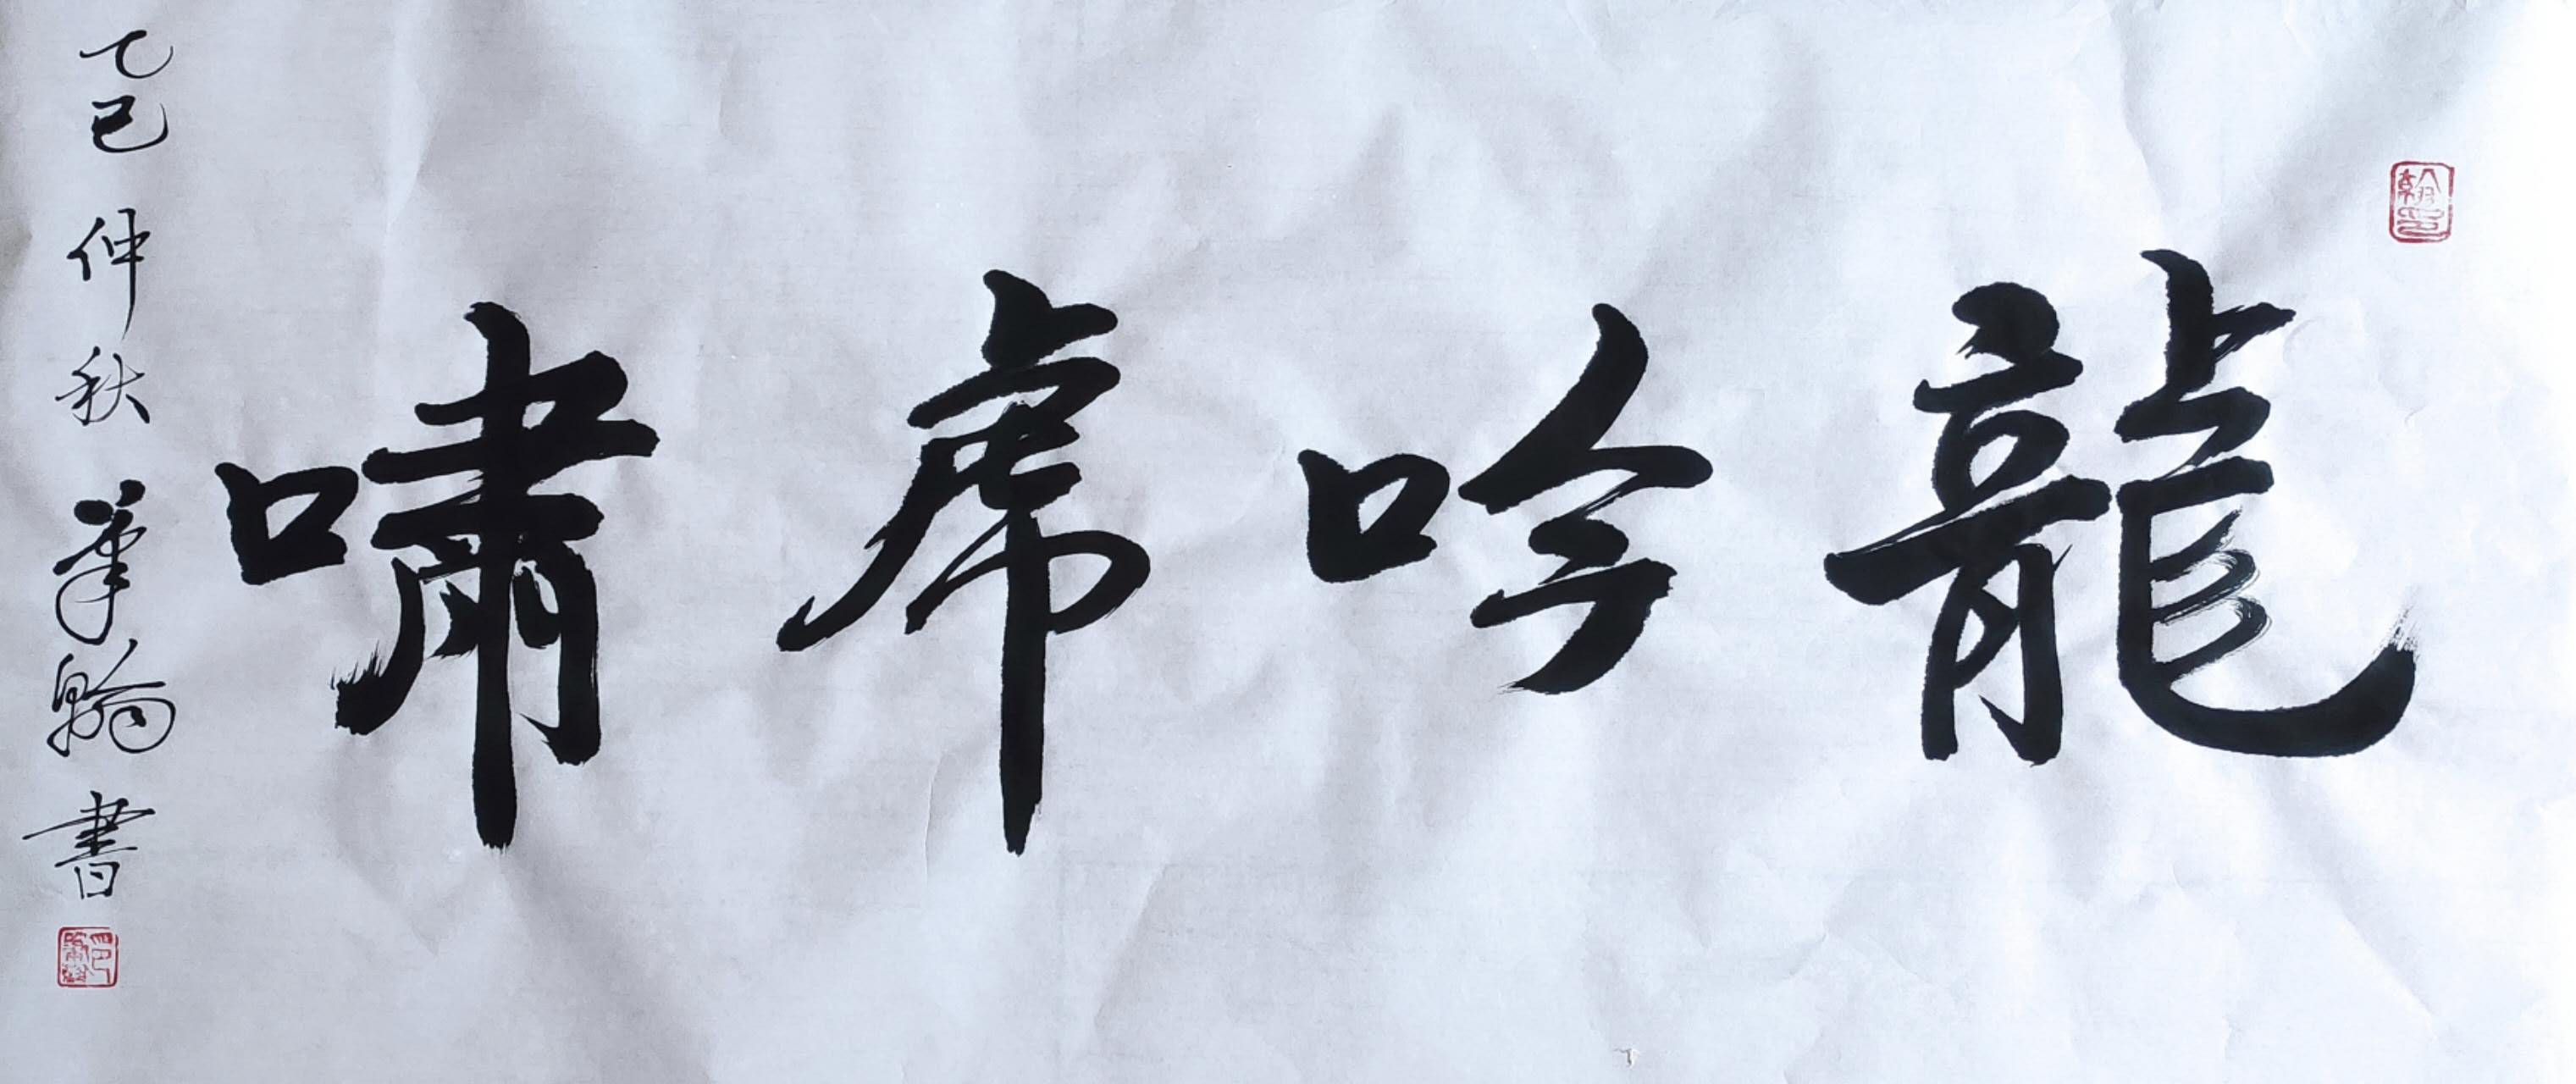 龍吟虎嘯
乙巳仲秋筆翰書